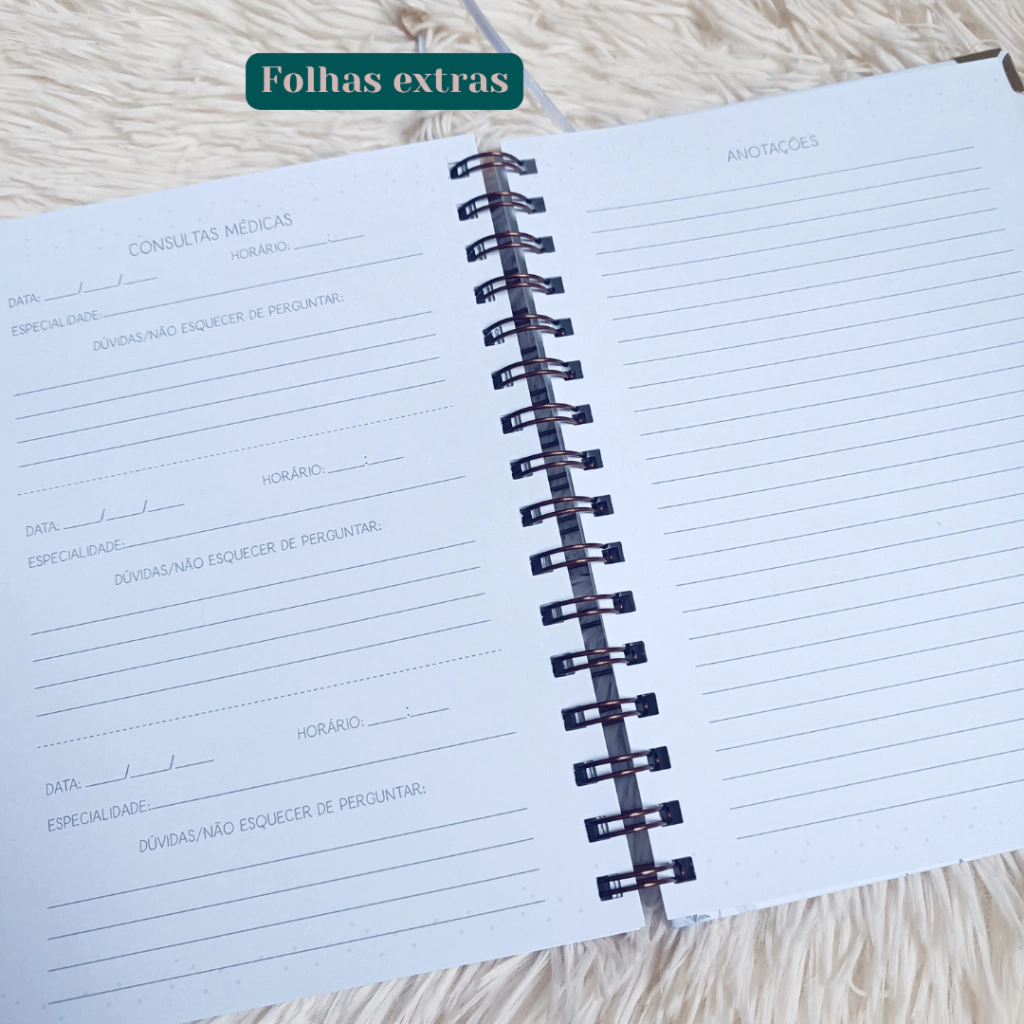 Folhas extras
CONSULTAS MÉDICAS
DATA: ____/____/____ HORÁRIO: ____:____
ESPECIALIDADE:
DÚVIDAS/NÃO ESQUECER DE PERGUNTAR:
DATA: ____/____/____ HORÁRIO: ____:____
ESPECIALIDADE:
DÚVIDAS/NÃO ESQUECER DE PERGUNTAR:
DATA: ____/____/____ HORÁRIO: ____:____
ESPECIALIDADE:
DÚVIDAS/NÃO ESQUECER DE PERGUNTAR:
ANOTAÇÕES